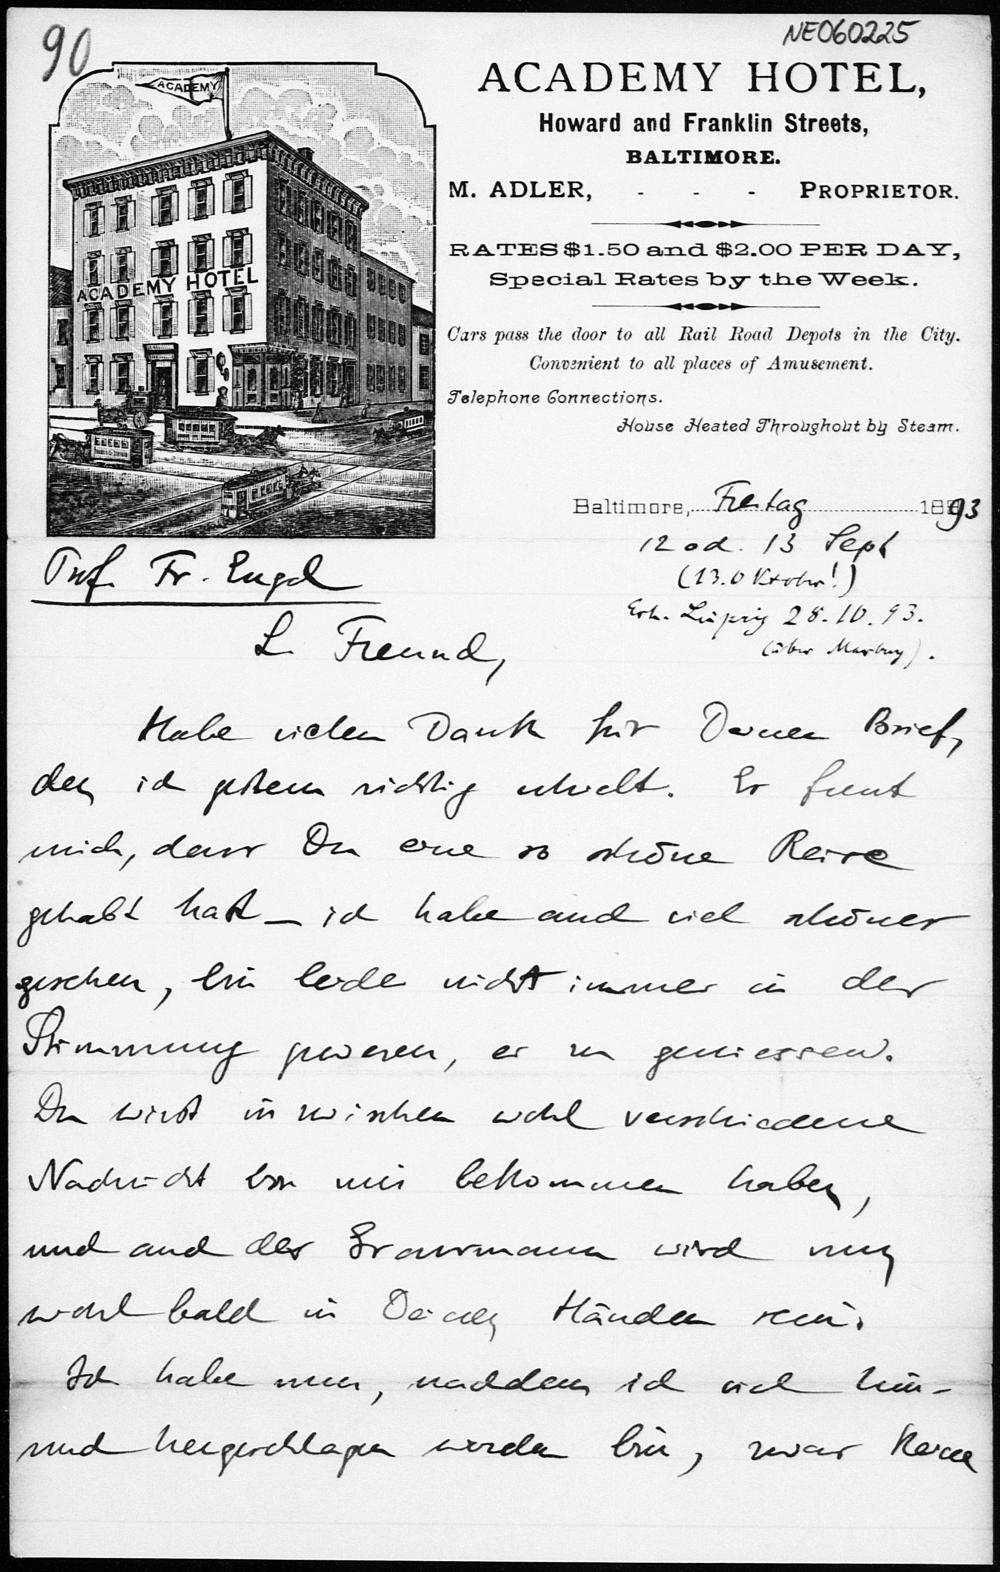 90
NE060225
ACADEMY
ACADEMY HOTEL
ACADEMY HOTEL,
Howard and Franklin Streets,
BALTIMORE.
M. ADLER, - - - PROPRIETOR.
RATES $1.50 and $2.00 PER DAY,
Special Rates by the Week.
Cars pass the door to all Rail Road Depots in the City.
Convenient to all places of Amusement.
Telephone Connections.
House Heated Throughout by Steam.
Baltimore, Freitag 1893
12 od. 13 Sept
(13. Oktober!)
Erh. Leipzig 28.10.93.
(über Marburg).
Prof. Fr. Engel
L. Freund,
Habe vielen Dank für Deinen Brief,
den ich gestern richtig erhielt. Es freut
mich, dass Du eine so schöne Reise
gehabt hast – ich habe auch viel schönes
gesehen, bin leide nicht immer in der
Stimmung gewesen, es zu geniessen.
Du wirst inzwischen wohl verschiedene
Nachricht von mir bekommen haben,
und auch der Grassmann wird nun
wohl bald in Deinen Händen sein.
Ich habe nun, nachdem ich viel hin-
und hergeschlagen worden bin, zwar keine